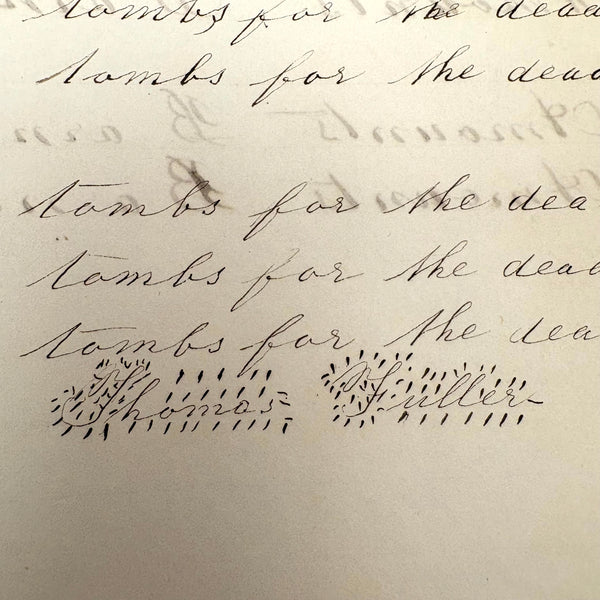 tombs for the dead
tombs for the dead
tombs for the dea
tombs for the dead
tombs for the dea
Thomas Fuller